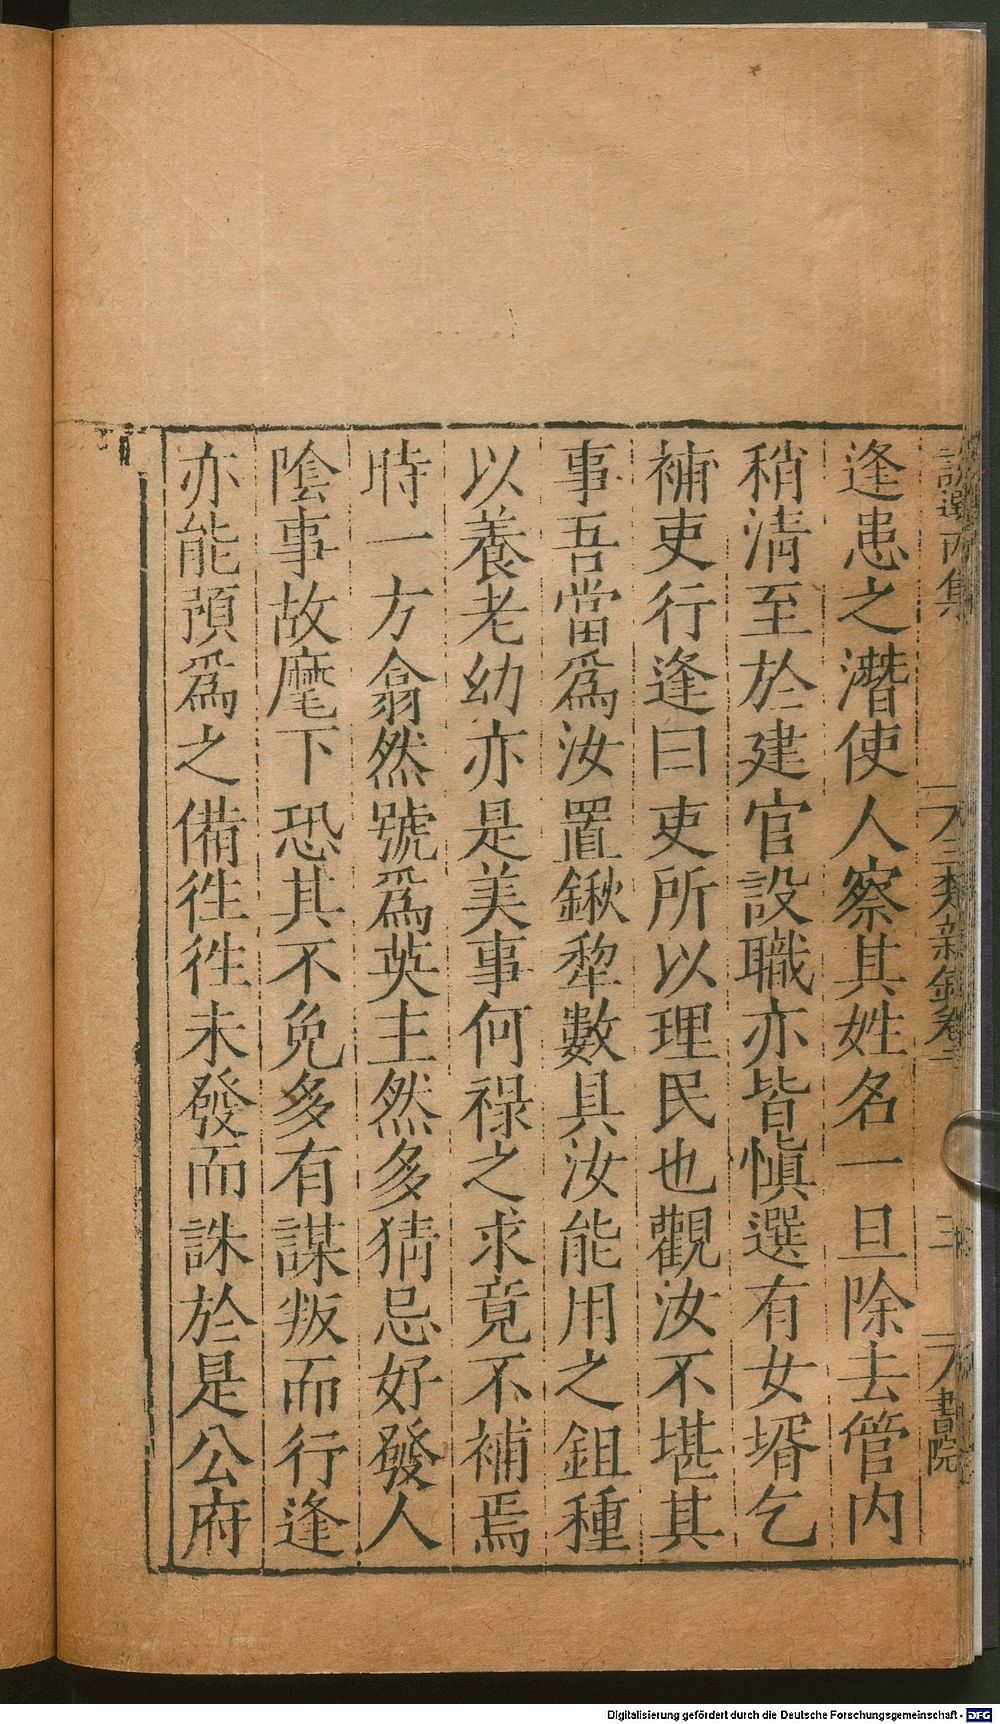 逢患之潛使人察其姓名一旦除去管内
稍淸至於建官設職亦皆愼選有女壻乞
補吏行逢曰吏所以理民也觀汝不堪其
事吾當爲汝置鍬犂數具汝能用之鉏種
以養老幼亦是美事何祿之求竟不補焉
時一方翕然號爲英主然多猜忌好發人
陰事故麾下恐其不免多有謀叛而行逢
亦能預爲之備徃徃未發而誅於是公府
書院
Digitalisierung gefördert durch die Deutsche Forschungsgemeinschaft - DFG